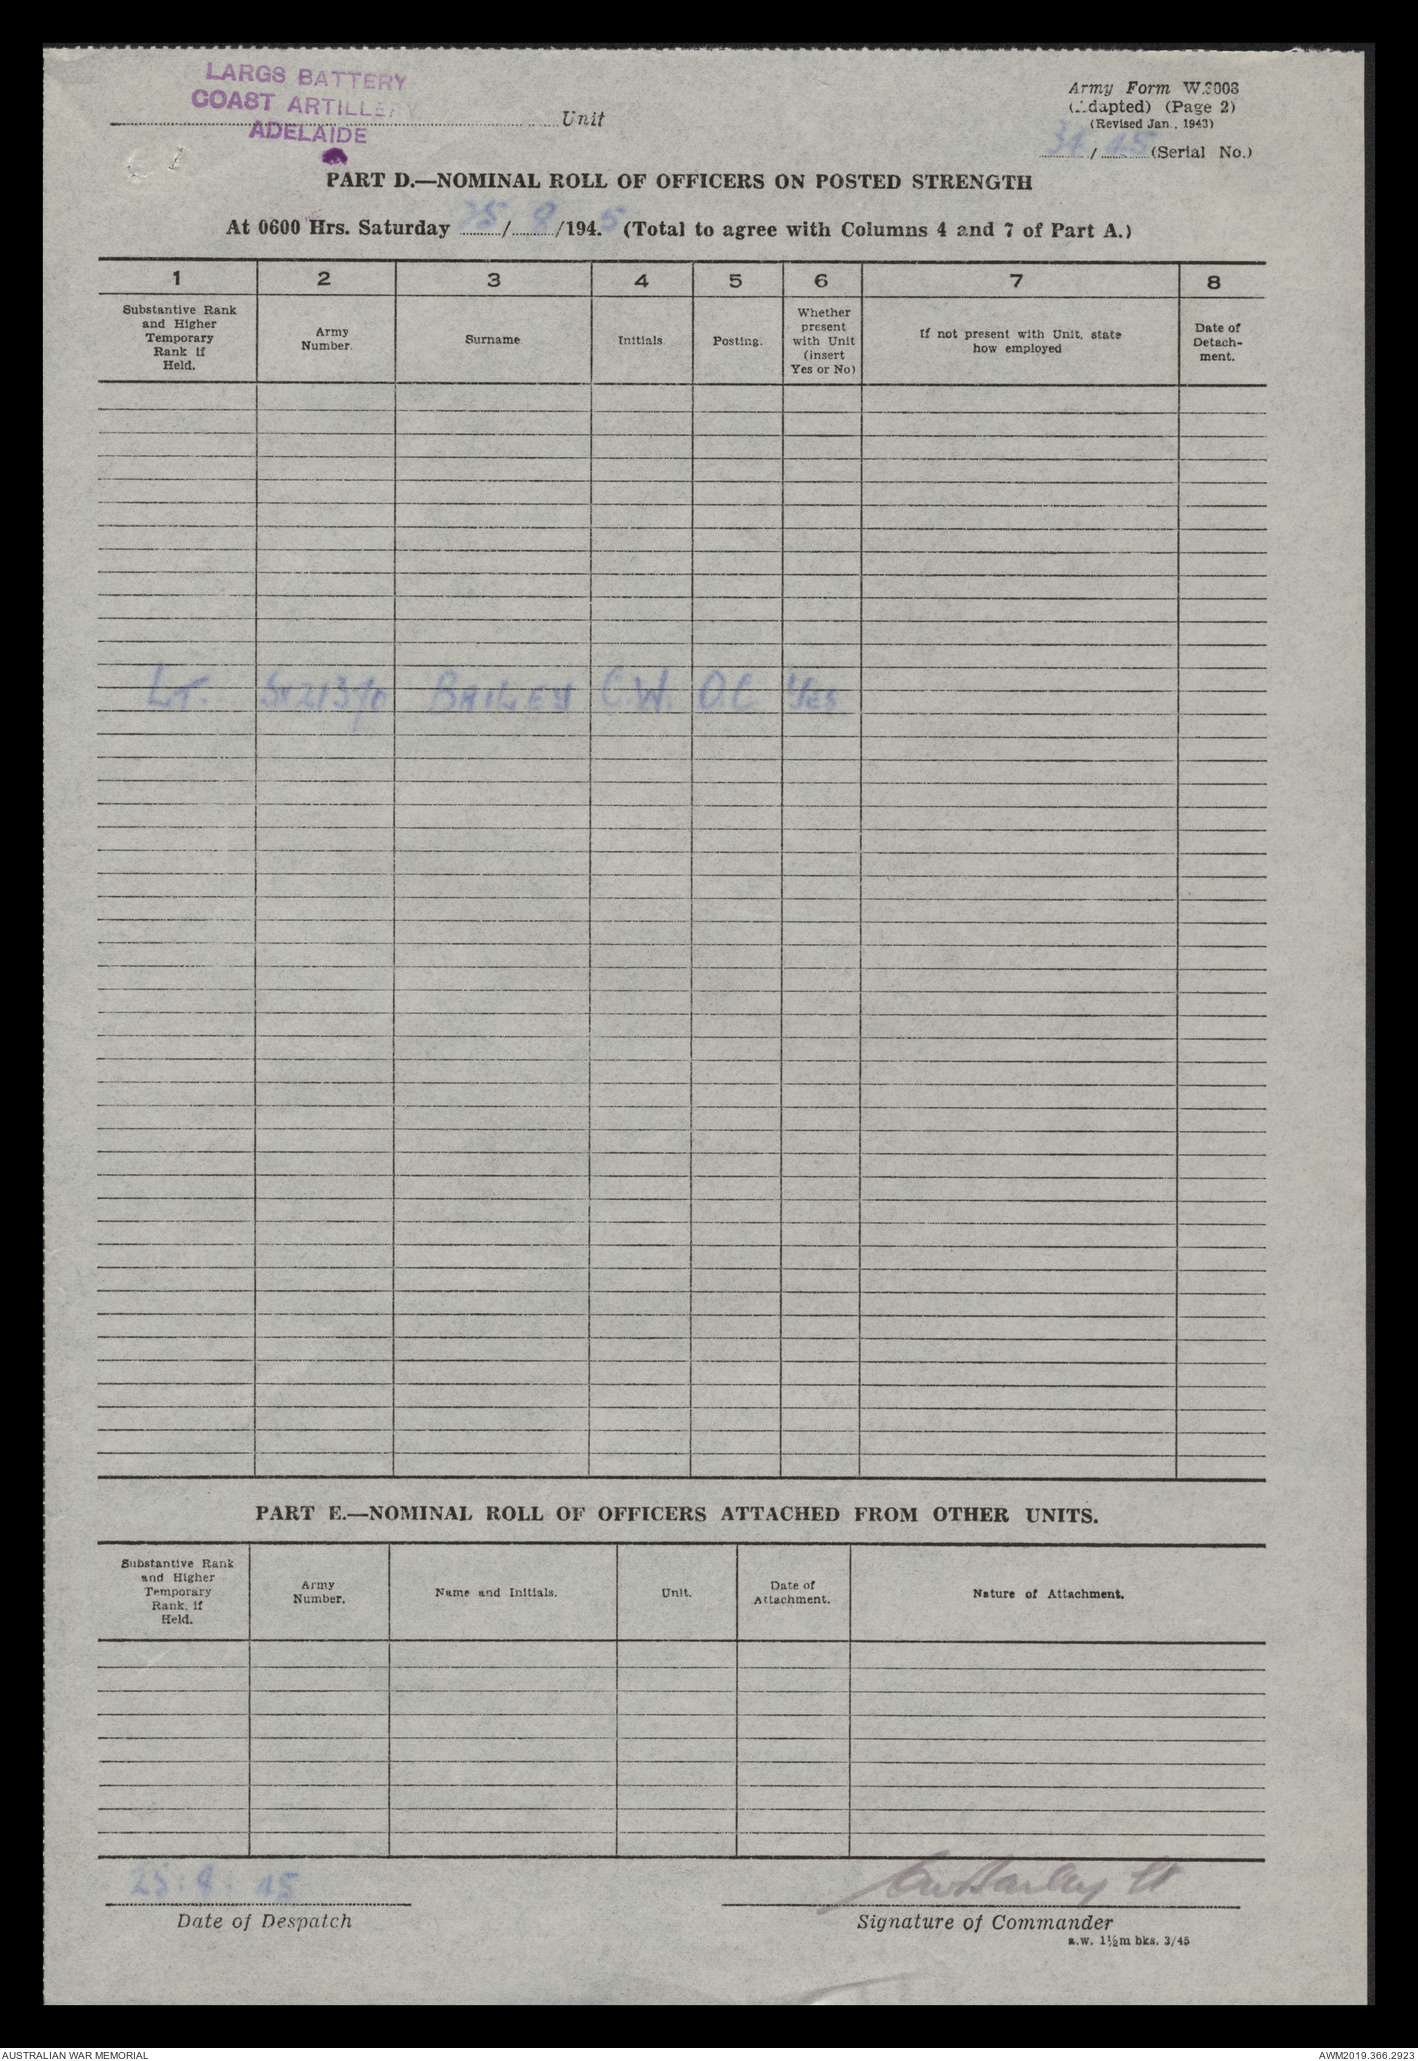 LARGS BATTERY
COAST ARTILLERY
ADELAIDE
Unit
Army Form W.3008
(Adapted) (Page 2)
(Revised Jan., 1943)
34 / 45 (Serial No.)
PART D.—NOMINAL ROLL OF OFFICERS ON POSTED STRENGTH
At 0600 Hrs. Saturday 25/8/1945 (Total to agree with Columns 4 and 7 of Part A.)
1 2 3 4 5 6 7 8
Substantive Rank and Higher Temporary Rank if Held.
Army Number.
Surname
Initials.
Posting.
Whether present with Unit (insert Yes or No)
If not present with Unit, state how employed
Date of Detach-ment.
LT. BAILEY C.W. O.C. Yes
PART E.—NOMINAL ROLL OF OFFICERS ATTACHED FROM OTHER UNITS.
Substantive Rank and Higher Temporary Rank, if Held.
Army Number.
Name and Initials.
Unit.
Date of Attachment.
Nature of Attachment.
25:8:45
CW Bailey Lt
Date of Despatch
Signature of Commander
a.w. 1½m bks. 3/45
AUSTRALIAN WAR MEMORIAL
AWM2019.366.2923